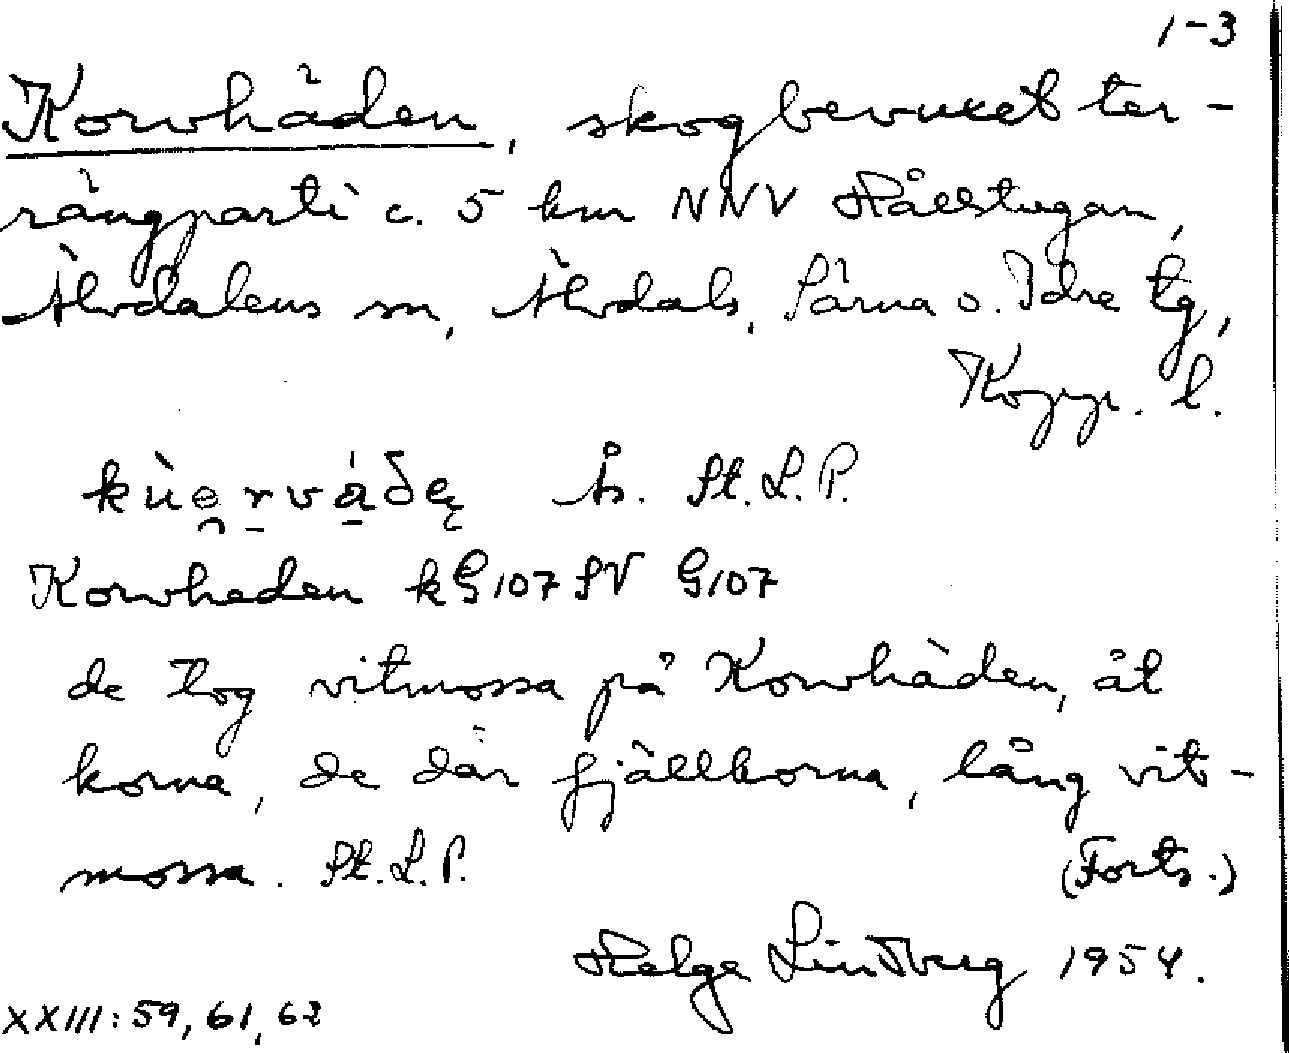 1-3
Korvhäden, skogbevuxet ter-
rängparti c. 5 km NNV Hållstugan,
Älvdalens sn, Älvdals, Särna o. Idre tg,
Kopp. l.
kùe̯r̠vá̠δę ås. St. L. P.
Korvheden kG107 SV G107
de tog vitmossa på Korvhäden, åt
korna, de där fjällkorna, lång vit-
mossa. St. L. P.
(Forts.)
Helge Lindberg 1954.
XXIII: 59, 61, 62